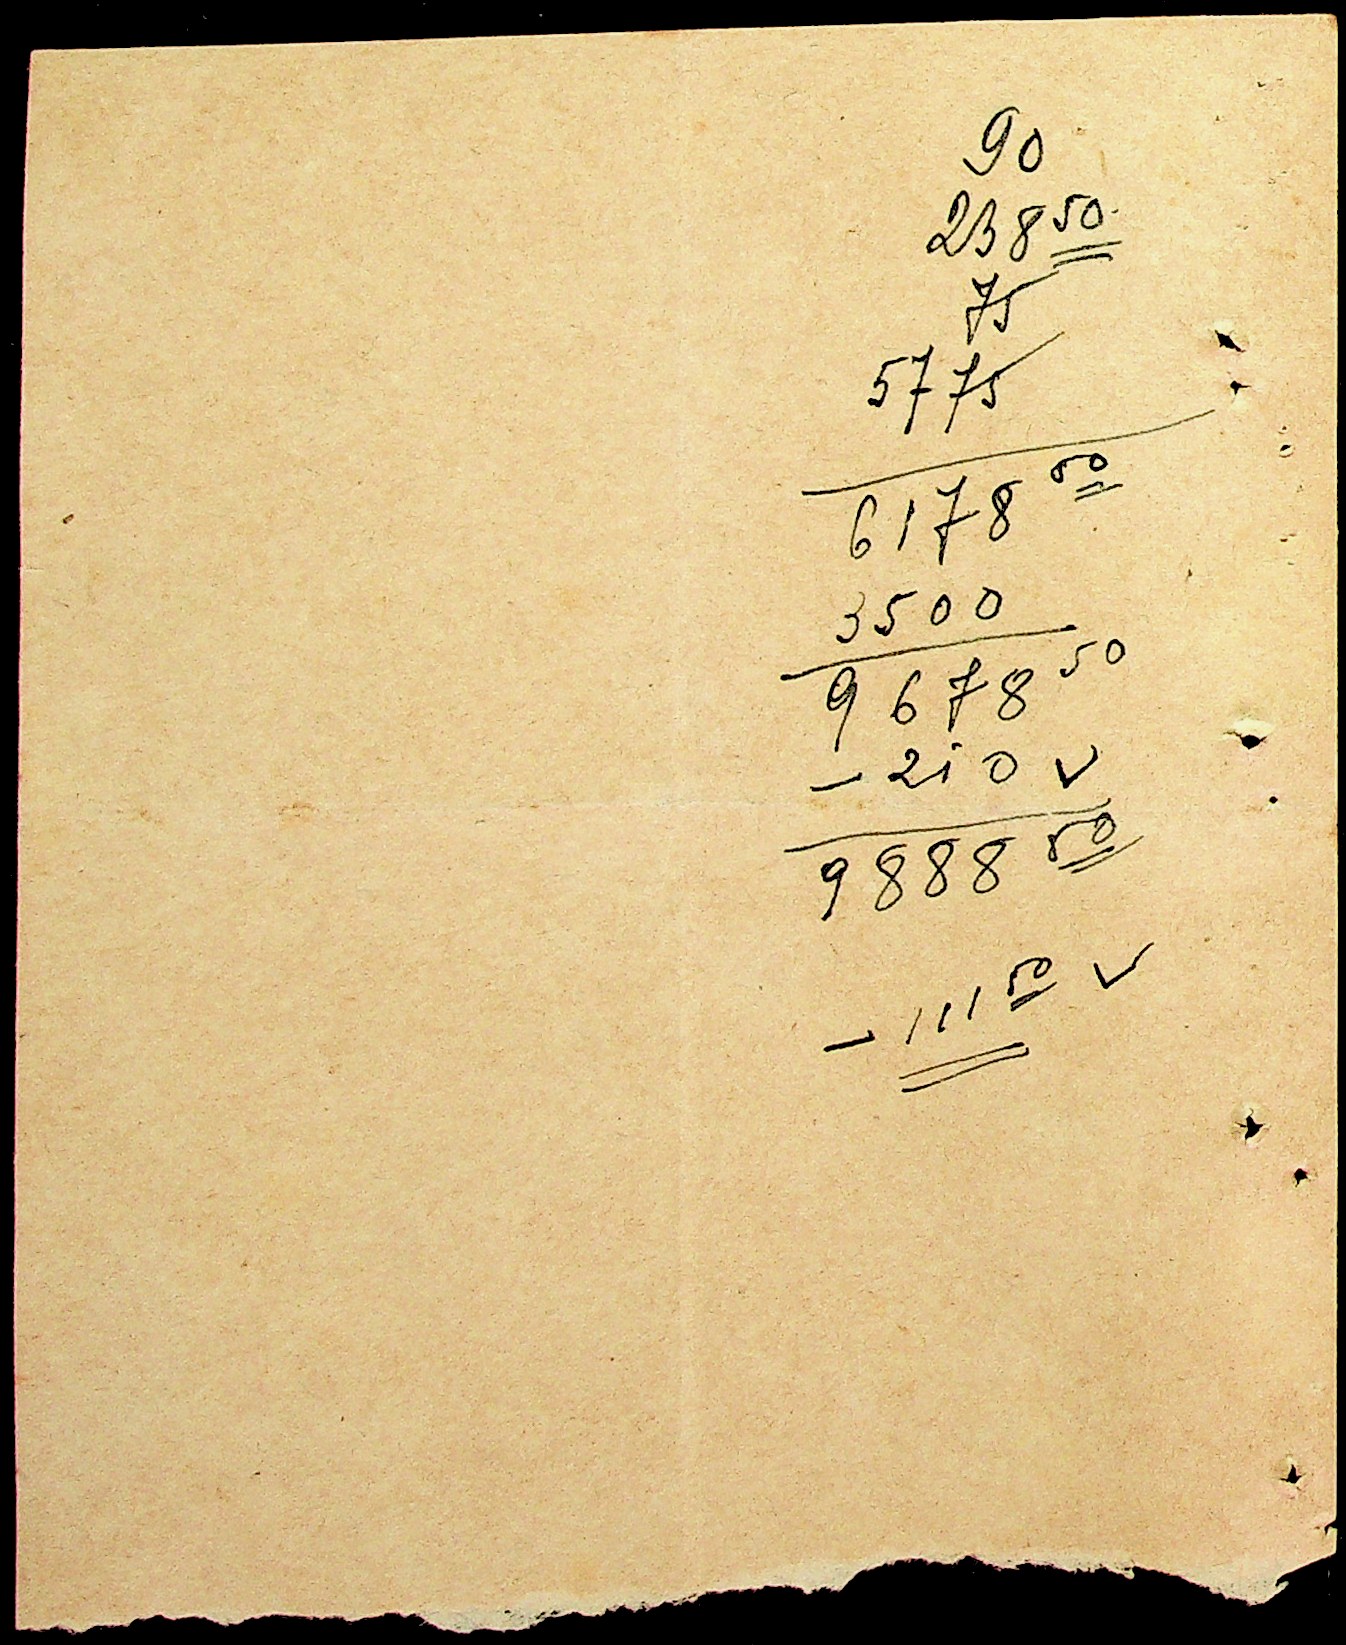 90
238 50
75
5775
6178 50
3500
9678 50
- 210 ✓
9888 50
- 111 50 ✓